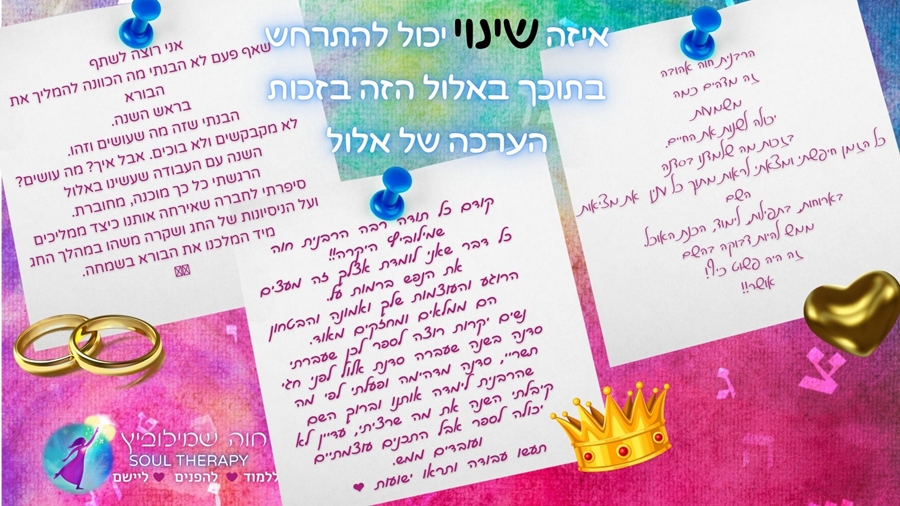 איזה שינוי יכול להתרחש
בתוכך באלול הזה בזכות
הערכה של אלול
הרבנית חוה אהובה
זה מדהים כמה
משמעת
יכולה לשנות את החיים.
בזכות מה שלמדנו בסדנה
כל הזמן חיפשתי ומצאתי לראות מתוך כל ענין את מציאות
השם
בארוחות בתפילות לימוד, הכנת האוכל
ממש להיות דבוקה בהשם
זה היה פשוט כיף!
אושר!!
אני רוצה לשתף
שאף פעם לא הבנתי מה הכוונה להמליך את
הבורא
בראש השנה.
הבנתי שזה מה שעושים וזהו.
לא מקבקשים ולא בוכים. אבל איך? מה עושים?
השנה עם העבודה שעשינו באלול
הרגשתי כל כך מוכנה, מחוברת.
סיפרתי לחברה שאירחה אותנו כיצד ממליכים
ועל הניסיונות של החג ושקרה משהו במהלך החג
מיד המלכנו את הבורא בשמחה.
קודם כל תודה רבה הרבנית חוה
שמילוביץ היקרה!!
כל דבר שאני לומדת אצלך זה מעצים
את הנפש ברמות על.
הרוגע והעוצמות שלך ואמונה והבטחון
הם ממלאים ומחזקים מאוד.
נשים יקרות רוצה לספר לכן שעברתי
סדנה בשנה שעברה סדנת אלול לפני חגי
תשריי, סדנה מדהימה ופעלתי לפי מה
שהרבנית לימדה אותנו וברוך השם
קיבלתי השנה את מה שרציתי, עדיין לא
יכולה לספר אבל התכנים עוצמתיים
ועובדים ממש.
תעשו עבודה ותראו ישועות ❤
חוה שמילוביץ
SOUL THERAPY
ללמוד ❤ להפנים ❤ ליישם